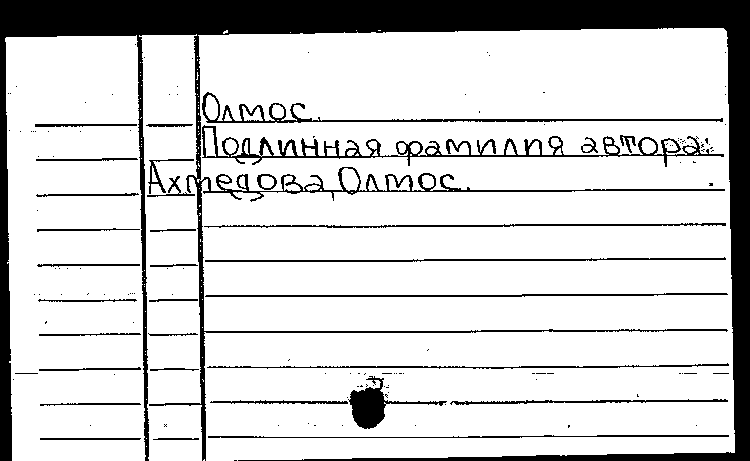 Олмос.
Подлинная фамилия автора:
Ахмедова, Олмос.